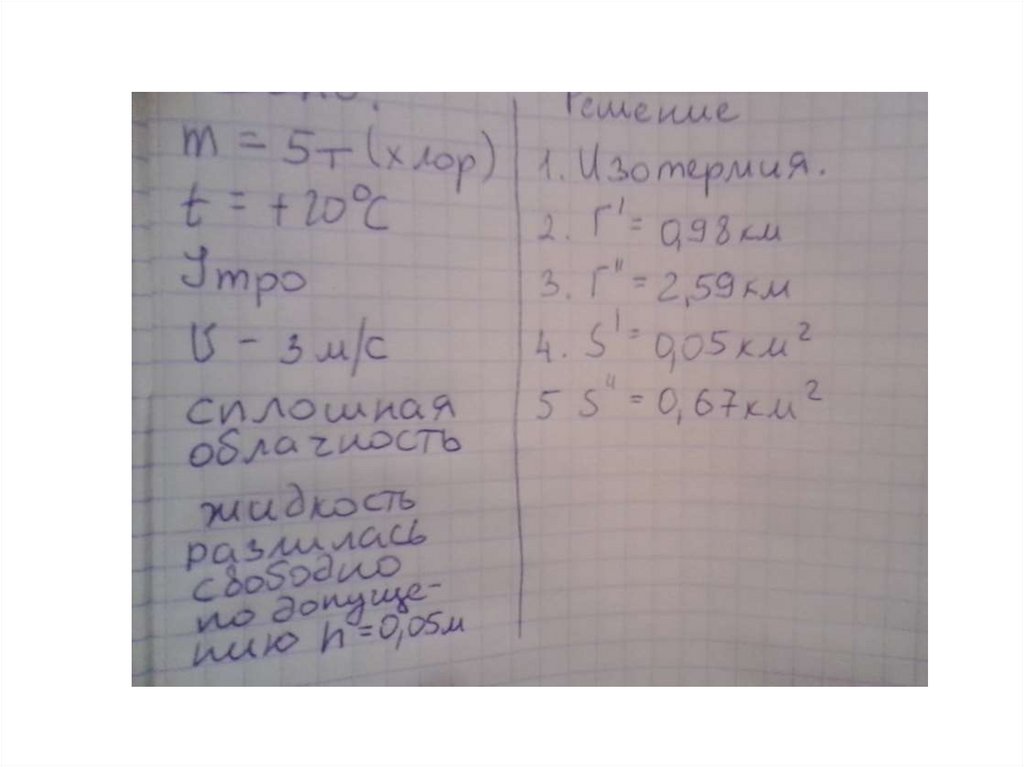 m = 5т (хлор)
t = +20°C
Утро
υ - 3 м/с
сплошная
облачность
жидкость
разлилась
свободно
по допуще-
нию h = 0,05м
Решение
1. Изотермия.
2. Г' = 0,98 км
3. Г" = 2,59 км
4. S' = 0,05 км²
5 S" = 0,67 км²